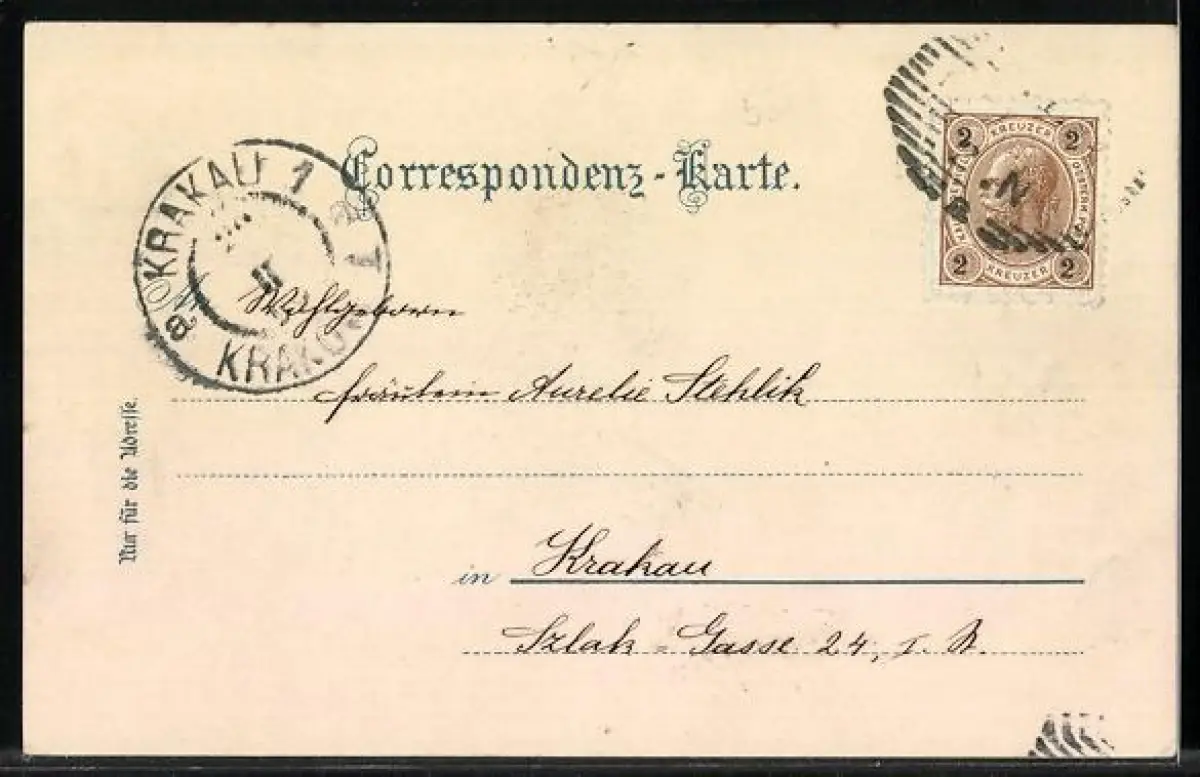 Correspondenz-Karte.
KRAKAU 1
KRAKO
2 KREUZER 2
2 KREUZER 2
Wohlgeboren
Fräulein Aurelie Stehlik
Nur für die Adresse.
in Krakau
Szlak-Gasse 24, I. St.